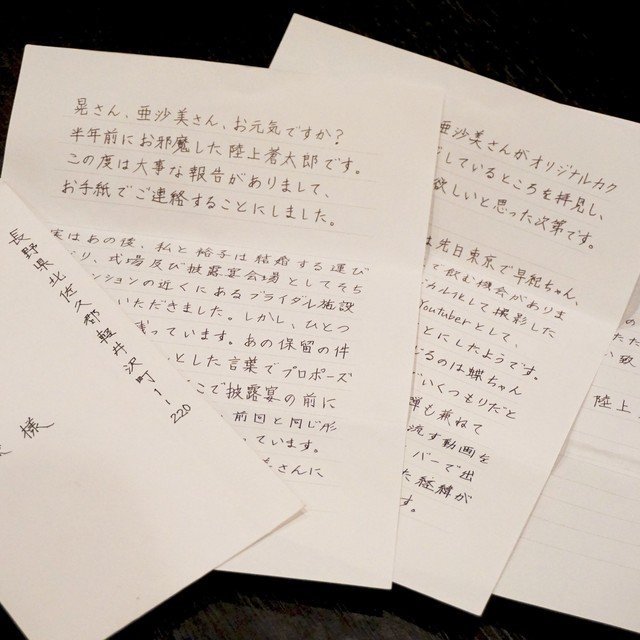 晃さん、亜沙美さん、お元気ですか？
半年前にお邪魔した陸上蒼太郎です。
この度は大事な報告がありまして、
お手紙でご連絡することにしました。
実はあの後、私と裕子は結婚する運び
り、式場及び披露宴会場としてたち
ンションの近くにあるブライダル施設
いただきました。しかし、ひとつ
っています。あの保留の件
とした言葉でプロポーズ
こで披露宴の前に
前回と同じ形
っています。
さんに
亜沙美さんがオリジナルカク
しているところを拝見し、
欲しいと思った次第です。
は先日東京で早紀ちゃん、
て飲む機会がありま
カル化して撮影した
Youtuberとして、
ことにしたようです。
るのは蝶ちゃん
いくつもりだと
も兼ねて
流す動画を
バーで出
た経緯が
す。
陸上
長野県北佐久郡軽井沢町1-220
様